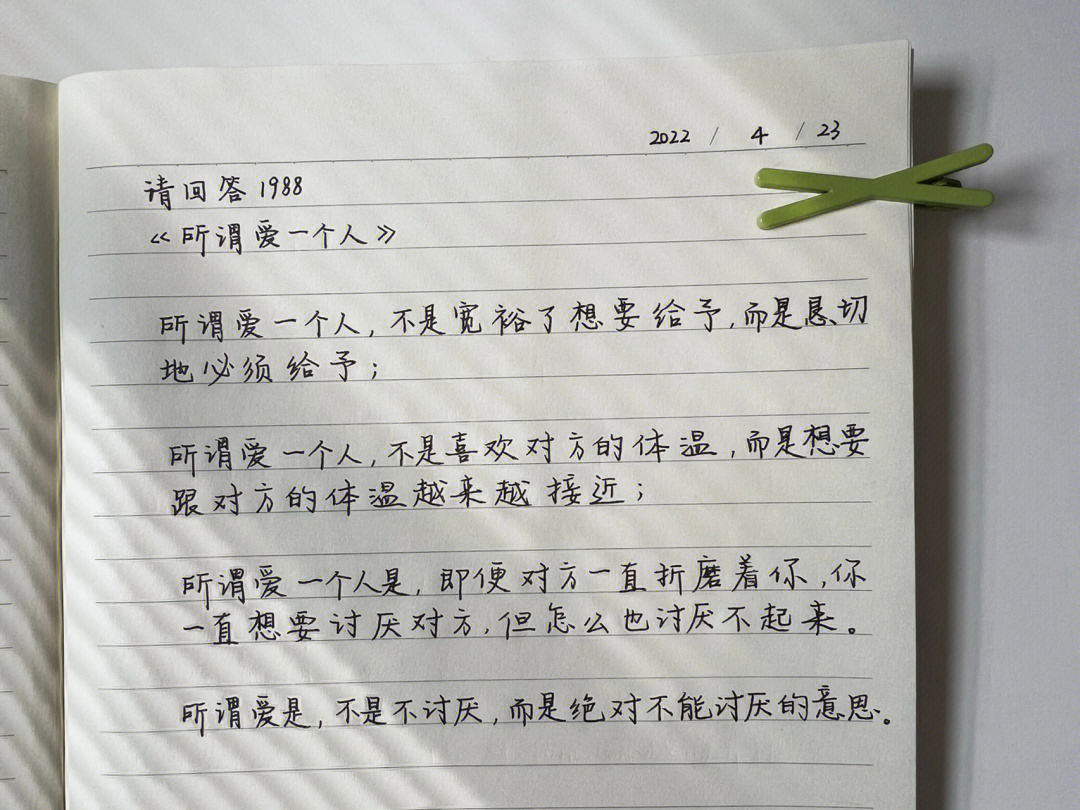 2022 / 4 / 23
请回答1988
《所谓爱一个人》
所谓爱一个人,不是宽裕了想要给予,而是恳切
地必须给予;
所谓爱一个人,不是喜欢对方的体温,而是想要
跟对方的体温越来越接近;
所谓爱一个人是,即便对方一直折磨着你,你
一直想要讨厌对方,但怎么也讨厌不起来。
所谓爱是,不是不讨厌,而是绝对不能讨厌的意思。